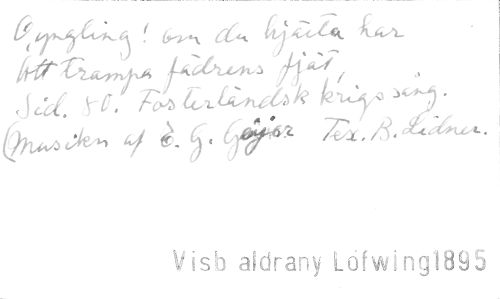 O yngling! om du hjärta har
Att trampa fädrens fjät,
Sid. 80. Fosterländsk krigssång.
(Musiken af E. G. Geijer Tex. B. Lidner.
Visb aldrany Löfwing1895